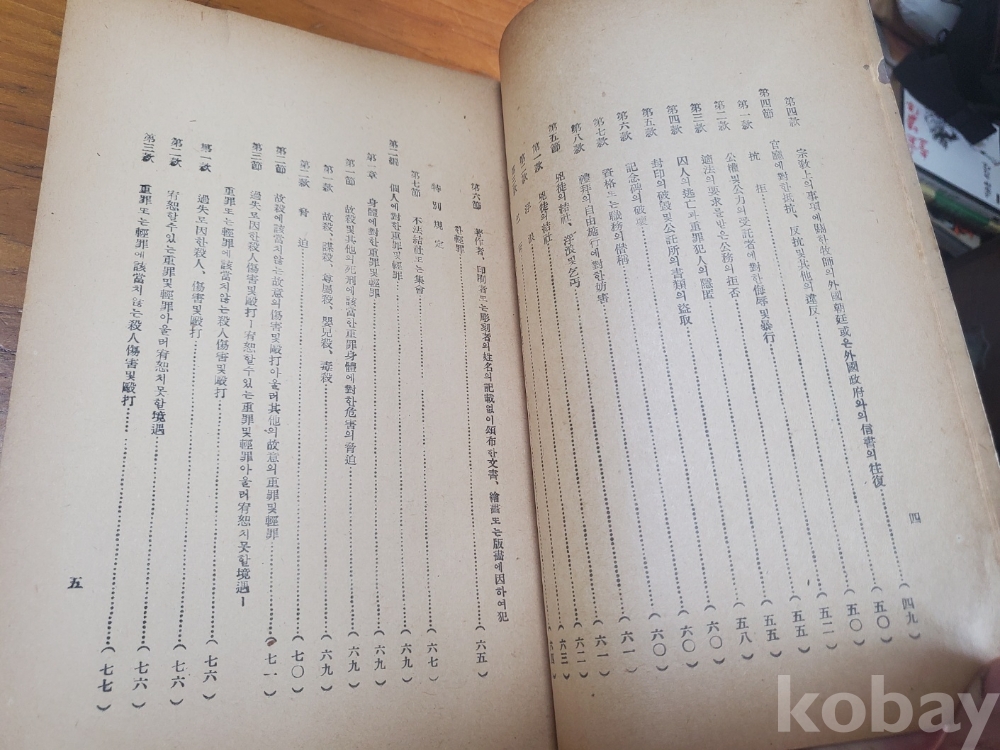 第四款 宗敎上의事項에關한牧師의外國朝廷或은外國政府와의信書의往復
(四九)
第四節 官廳에對한抵抗、反抗및其他의違反 (五〇)
第一款 抗拒 (五〇)
第二款 公權및公力의受託者에對한侮辱및暴行 (五二)
第三款 違法의要求를받은公務의拒否 (五五)
第四款 囚人의逃亡과重罪犯人의隱匿 (五五)
第五款 封印의破毁및公託府의書類의盜取 (五八)
第六款 記念碑의破壞 (六〇)
第七款 資格또는職務의僭稱 (六〇)
第八款 禮拜의自由施行에對한妨害 (六一)
第五節 兇徒의結社、浮浪및乞丐 (六一)
第一款 兇徒의結社 (六二)
第二款 浮浪 (六三)
四
第六節 著作者、印刷者또는彫刻者의姓名의記載없이頒布한文書、繪畵또는版畵에因하여犯
한輕罪 (六五)
特別規定
第七節 不法結社또는集會 (六七)
第二編 個人에對한重罪및輕罪 (六九)
第一章 身體에對한重罪및輕罪 (六九)
第一節 故殺및其他의死刑에該當한重罪身體에對한危害의脅迫 (六九)
第一款 故殺、謀殺、尊屬殺、嬰兒殺、毒殺 (六九)
第二款 脅迫 (七〇)
第二節 故殺에該當지않는故意의傷害및毆打아울러其他의故意의重罪및輕罪 (七一)
第三節 過失로因한殺人傷害및毆打ー宥恕할수있는重罪및輕罪아울러宥恕치못할境遇ー
重罪또는輕罪에該當치않는殺人傷害및毆打
第一款 過失로因한殺人、傷害및毆打 (七六)
第二款 宥恕할수있는重罪및輕罪아울러宥恕치못할境遇 (七六)
第三款 重罪또는輕罪에該當치않는殺人傷害및毆打 (七七)
五
kobay